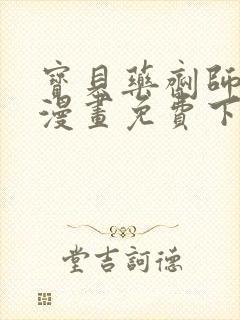 寶貝藥劑師
漫畫免費下
堂吉訶德